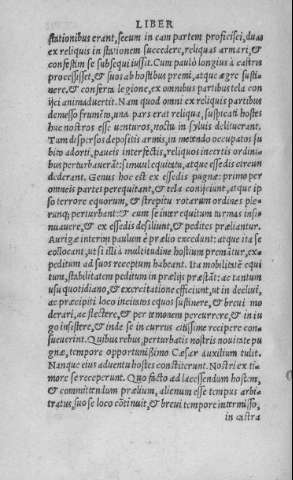 LIBER
stationibus erant, secum in eam partem proficisci, duas
ex reliquis in stationem succedere, reliquas armari, &
confestim se subsequi iussit. Cum paulò longius à castris
processisset, & suos ab hostibus premi, atque ægre susti-
nere, & conferta legione, ex omnibus partibus tela con
iici animaduertit. Nam quod omni ex reliquis partibus
demesso frumēto, una pars erat reliqua, suspicati hostes
huc nostros esse uenturos, noctu in syluis delituerant.
Tum dispersos depositis armis, in metendo occupatos su
bito adorti, paucis interfectis, reliquos incertis ordini-
bus perturbauerāt: simul equitatu, atque essedis circun
dederant. Genus hoc est ex essedis pugnæ: primo per
omneis partes perequitant, & tela conijciunt, atque ip
so terrore equorum, & strepitu rotarum ordines ple-
runq; perturbant: & cum se inter equitum turmas insi-
nuauere, & ex essedis desiliunt, & pedites præliantur.
Aurigæ interim paulum è prælio excedunt: atque ita se
collocant, ut si illi à multitudine hostium premātur, ex-
peditum ad suos receptum habeant. Ita mobilitatē equi
tum, stabilitatem peditum in prælijs præstāt: ac tantum
usu quotidiano, & exercitatione efficiunt, ut in decliui,
ac præcipiti loco incitatos equos sustinere, & breui mo
derari, ac flectere, & per temonem percurrere, & in iu
go insistere, & inde se in currus citissime recipere con-
sueuerint. Quibus rebus, perturbatis nostris nouitate pu
gnæ, tempore opportunißimo Cæsar auxilium tulit.
Nanque eius aduentu hostes constiterunt. Nostri ex ti
more se receperunt. Quo facto ad lacessendum hostem,
& committendum prælium, alienum esse tempus arbi-
tratus, suo se loco cōtinuit, & breui tempore intermisso,
in castra